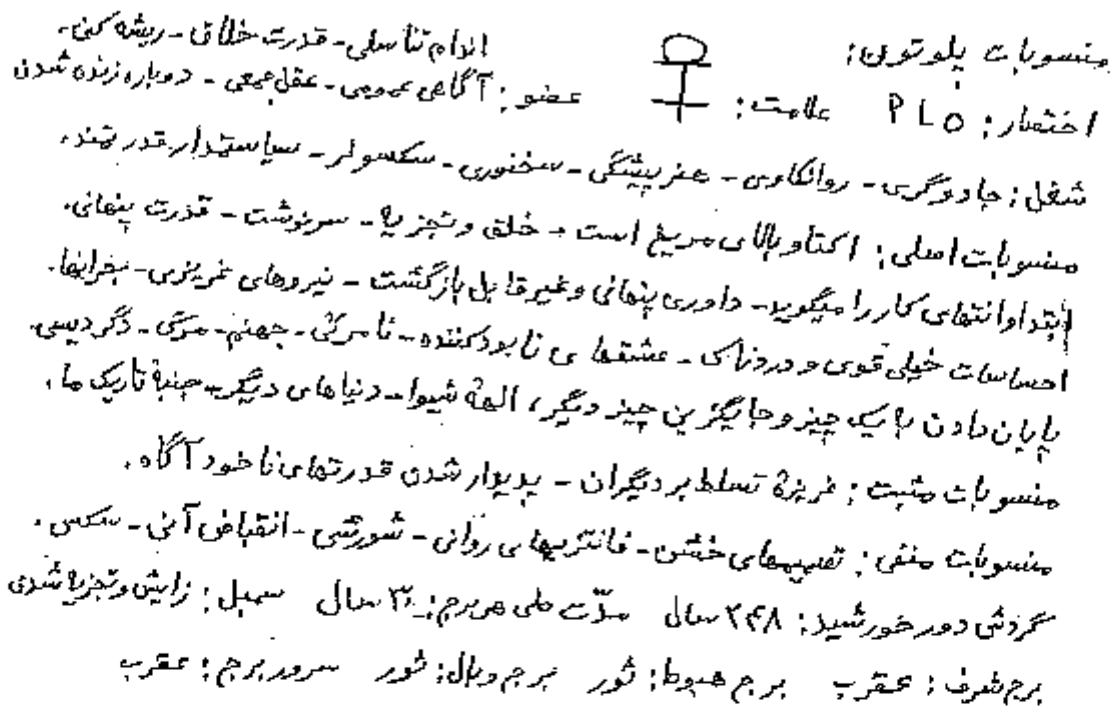 منسوبات پلوتون:
اندام تناسلی - قدرت خلاق - ریشه کنی.
اختصار: PLO علامت: عضو: آگاهی عمومی - عقل جمعی - دوباره زنده شدن
شغل: جادوگری - روانکاوی - هنرپیشگی - سخنوری - سکسولر - سیاستمدار قدرتمند.
منسوبات اصلی: اکتاو بالای مریخ است - خلق و تجزیه - سرنوشت - قدرت پنهانی.
ابتدا و انتهای کار را میگوید - داوری پنهانی و غیر قابل بازگشت - نیروهای غریزی - بحرانها.
احساسات خیلی قوی و دردناک - عشقهای نابود کننده - نامرئی - جهنم - مرگ - دگردیسی.
پایان دادن به یک چیز و جایگزین چیز دیگر، الهة شیوا - دنیاهای دیگر - جنبة تاریک ما.
منسوبات مثبت: غریزة تسلط بر دیگران - پدیدار شدن قدرتهای ناخودآگاه.
منسوبات منفی: تصمیمهای خشن - فانتزیهای روانی - شورشی - انقباض آنی - سکس.
گردش دور خورشید: ۲۴۸ سال مدّت طی هر برج: ۳۰ سال سمبل: زایش و تجزیه شدن
برج شرف: عقرب برج هبوط: ثور برج وبال: ثور سرور برج: عقرب